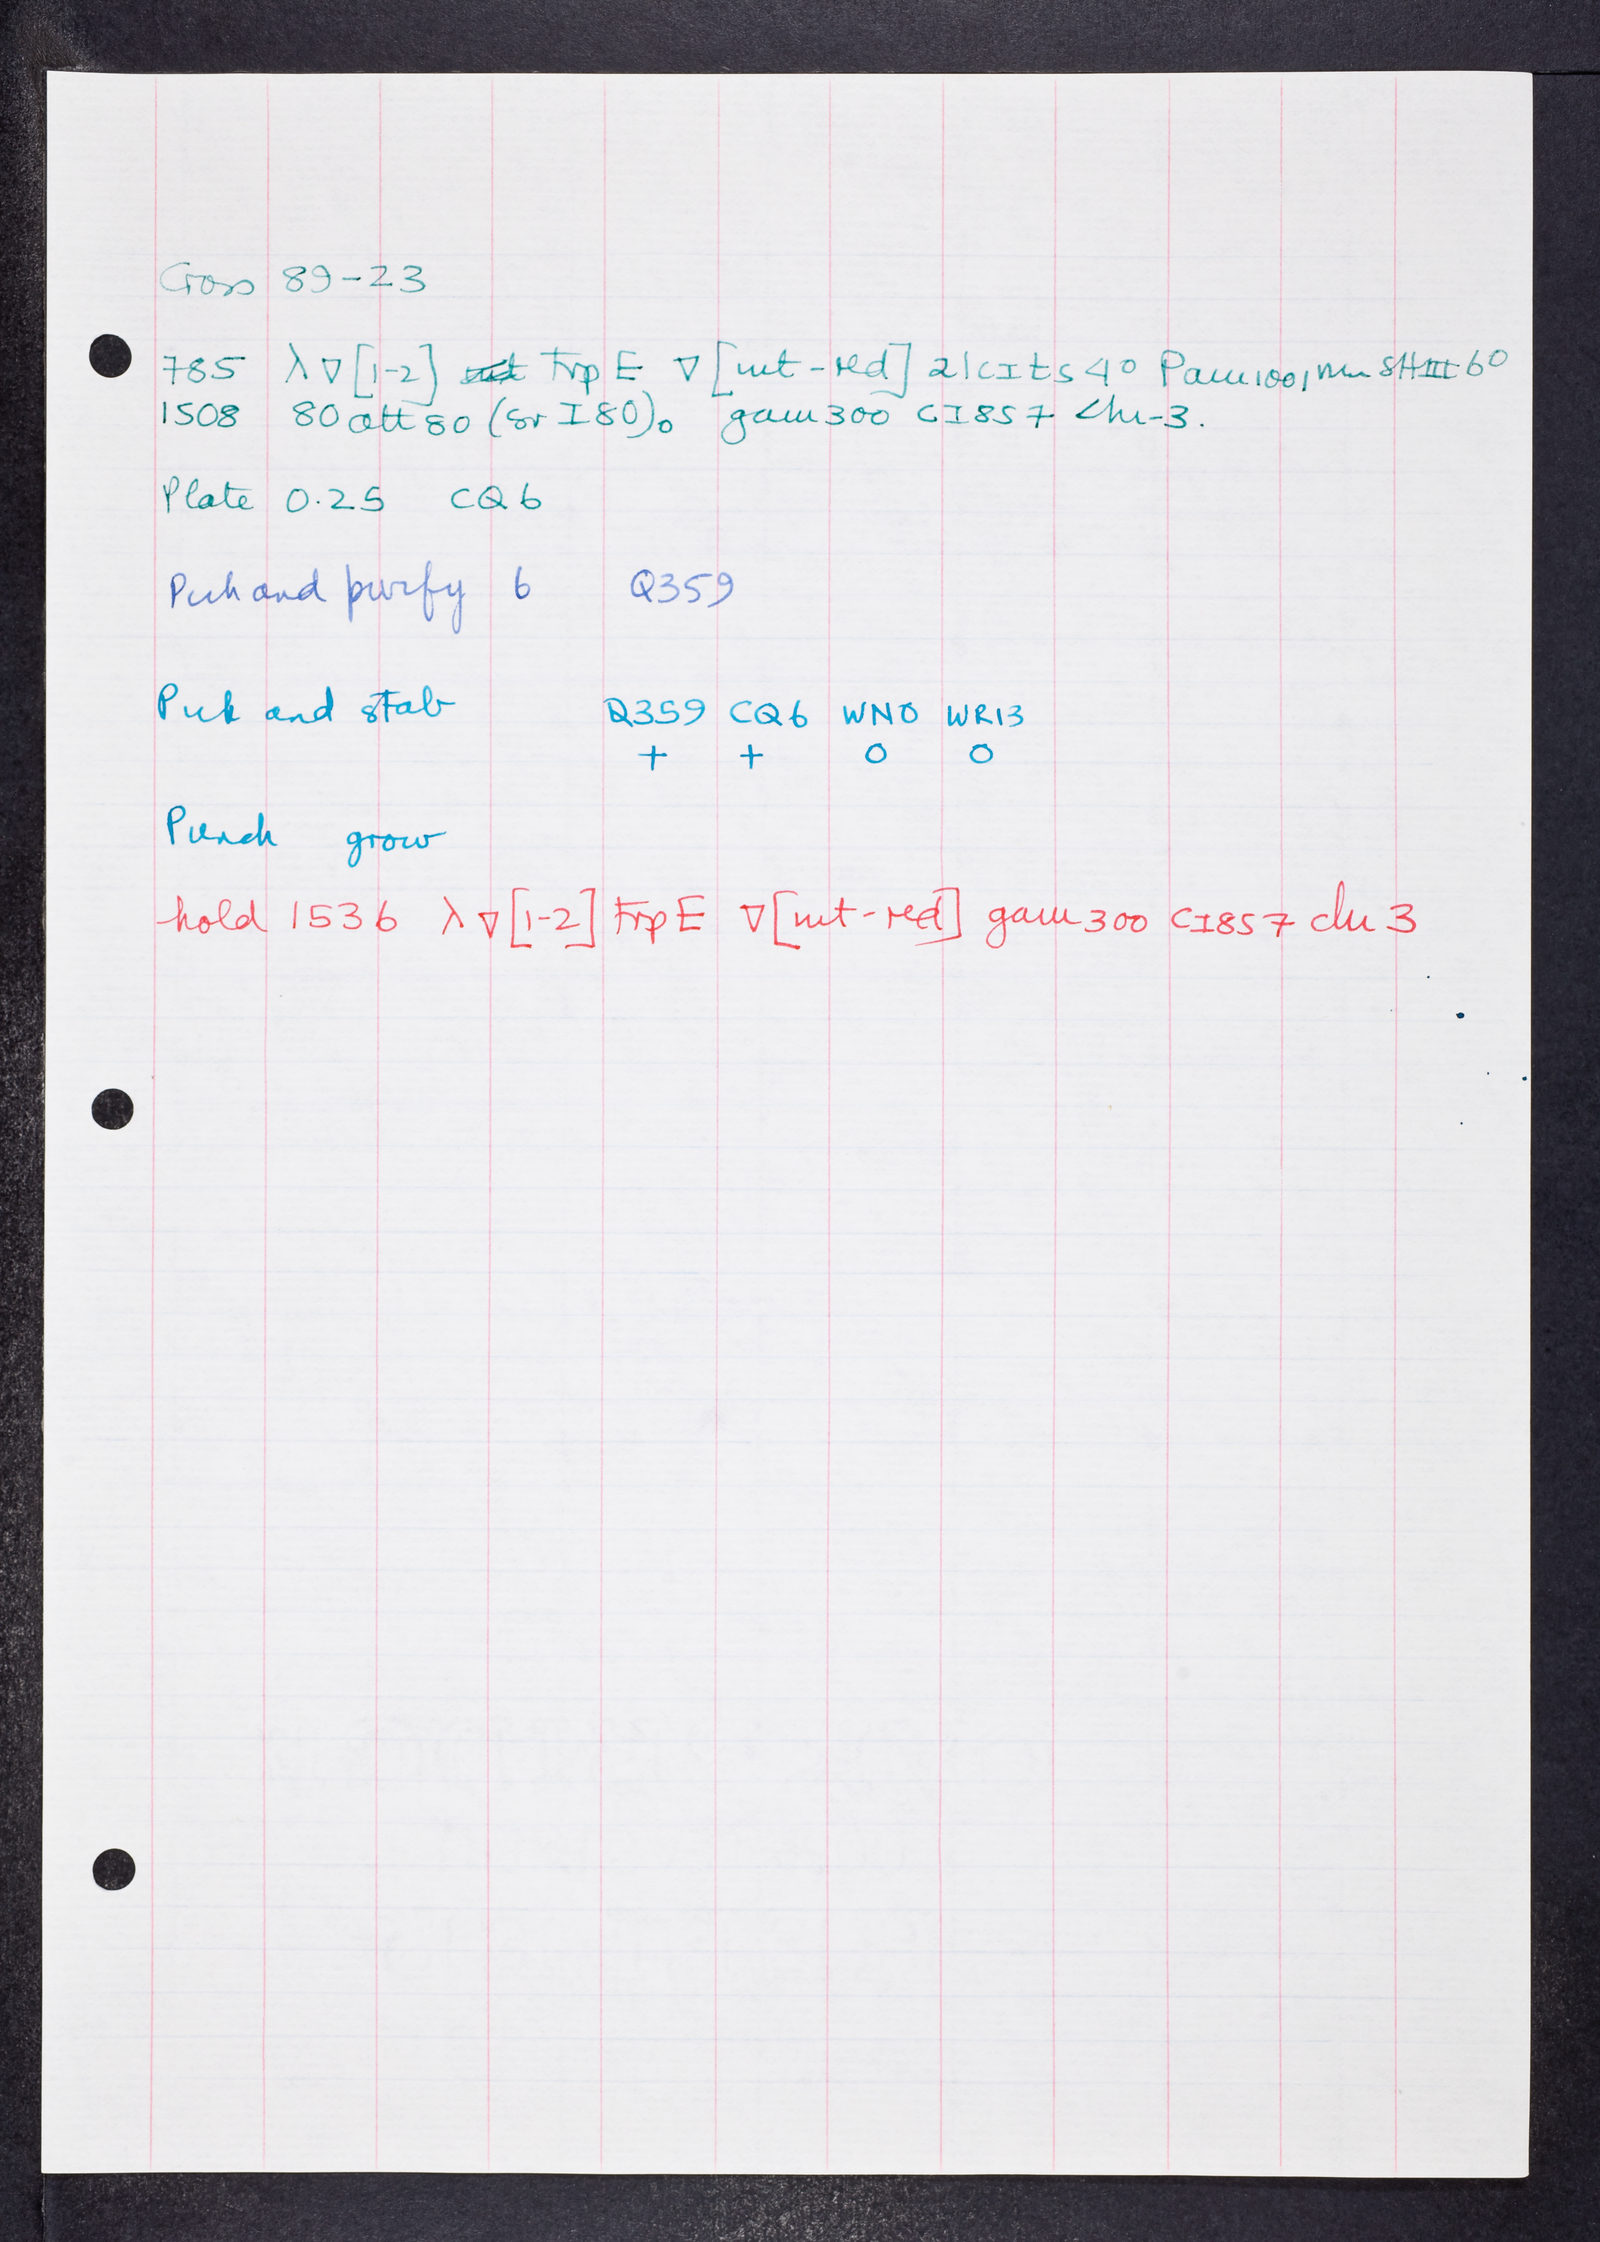 Cross 89-23
785 λ ∇ [1-2] trp E ∇ [int-red] 21 cI ts 40 Pam1001, nin SHIII 60
1508 80 att 80 (sr I 80)o gam300 CI857 Chi-3.
Plate 0.25 CQ6
Pick and purify 6 Q359
Pick and stab Q359 CQ6 WN0 WR13
+ + 0 0
Punch grow
hold 1536 λ ∇ [1-2] trp E ∇ [int-red] gam300 CI857 chi 3